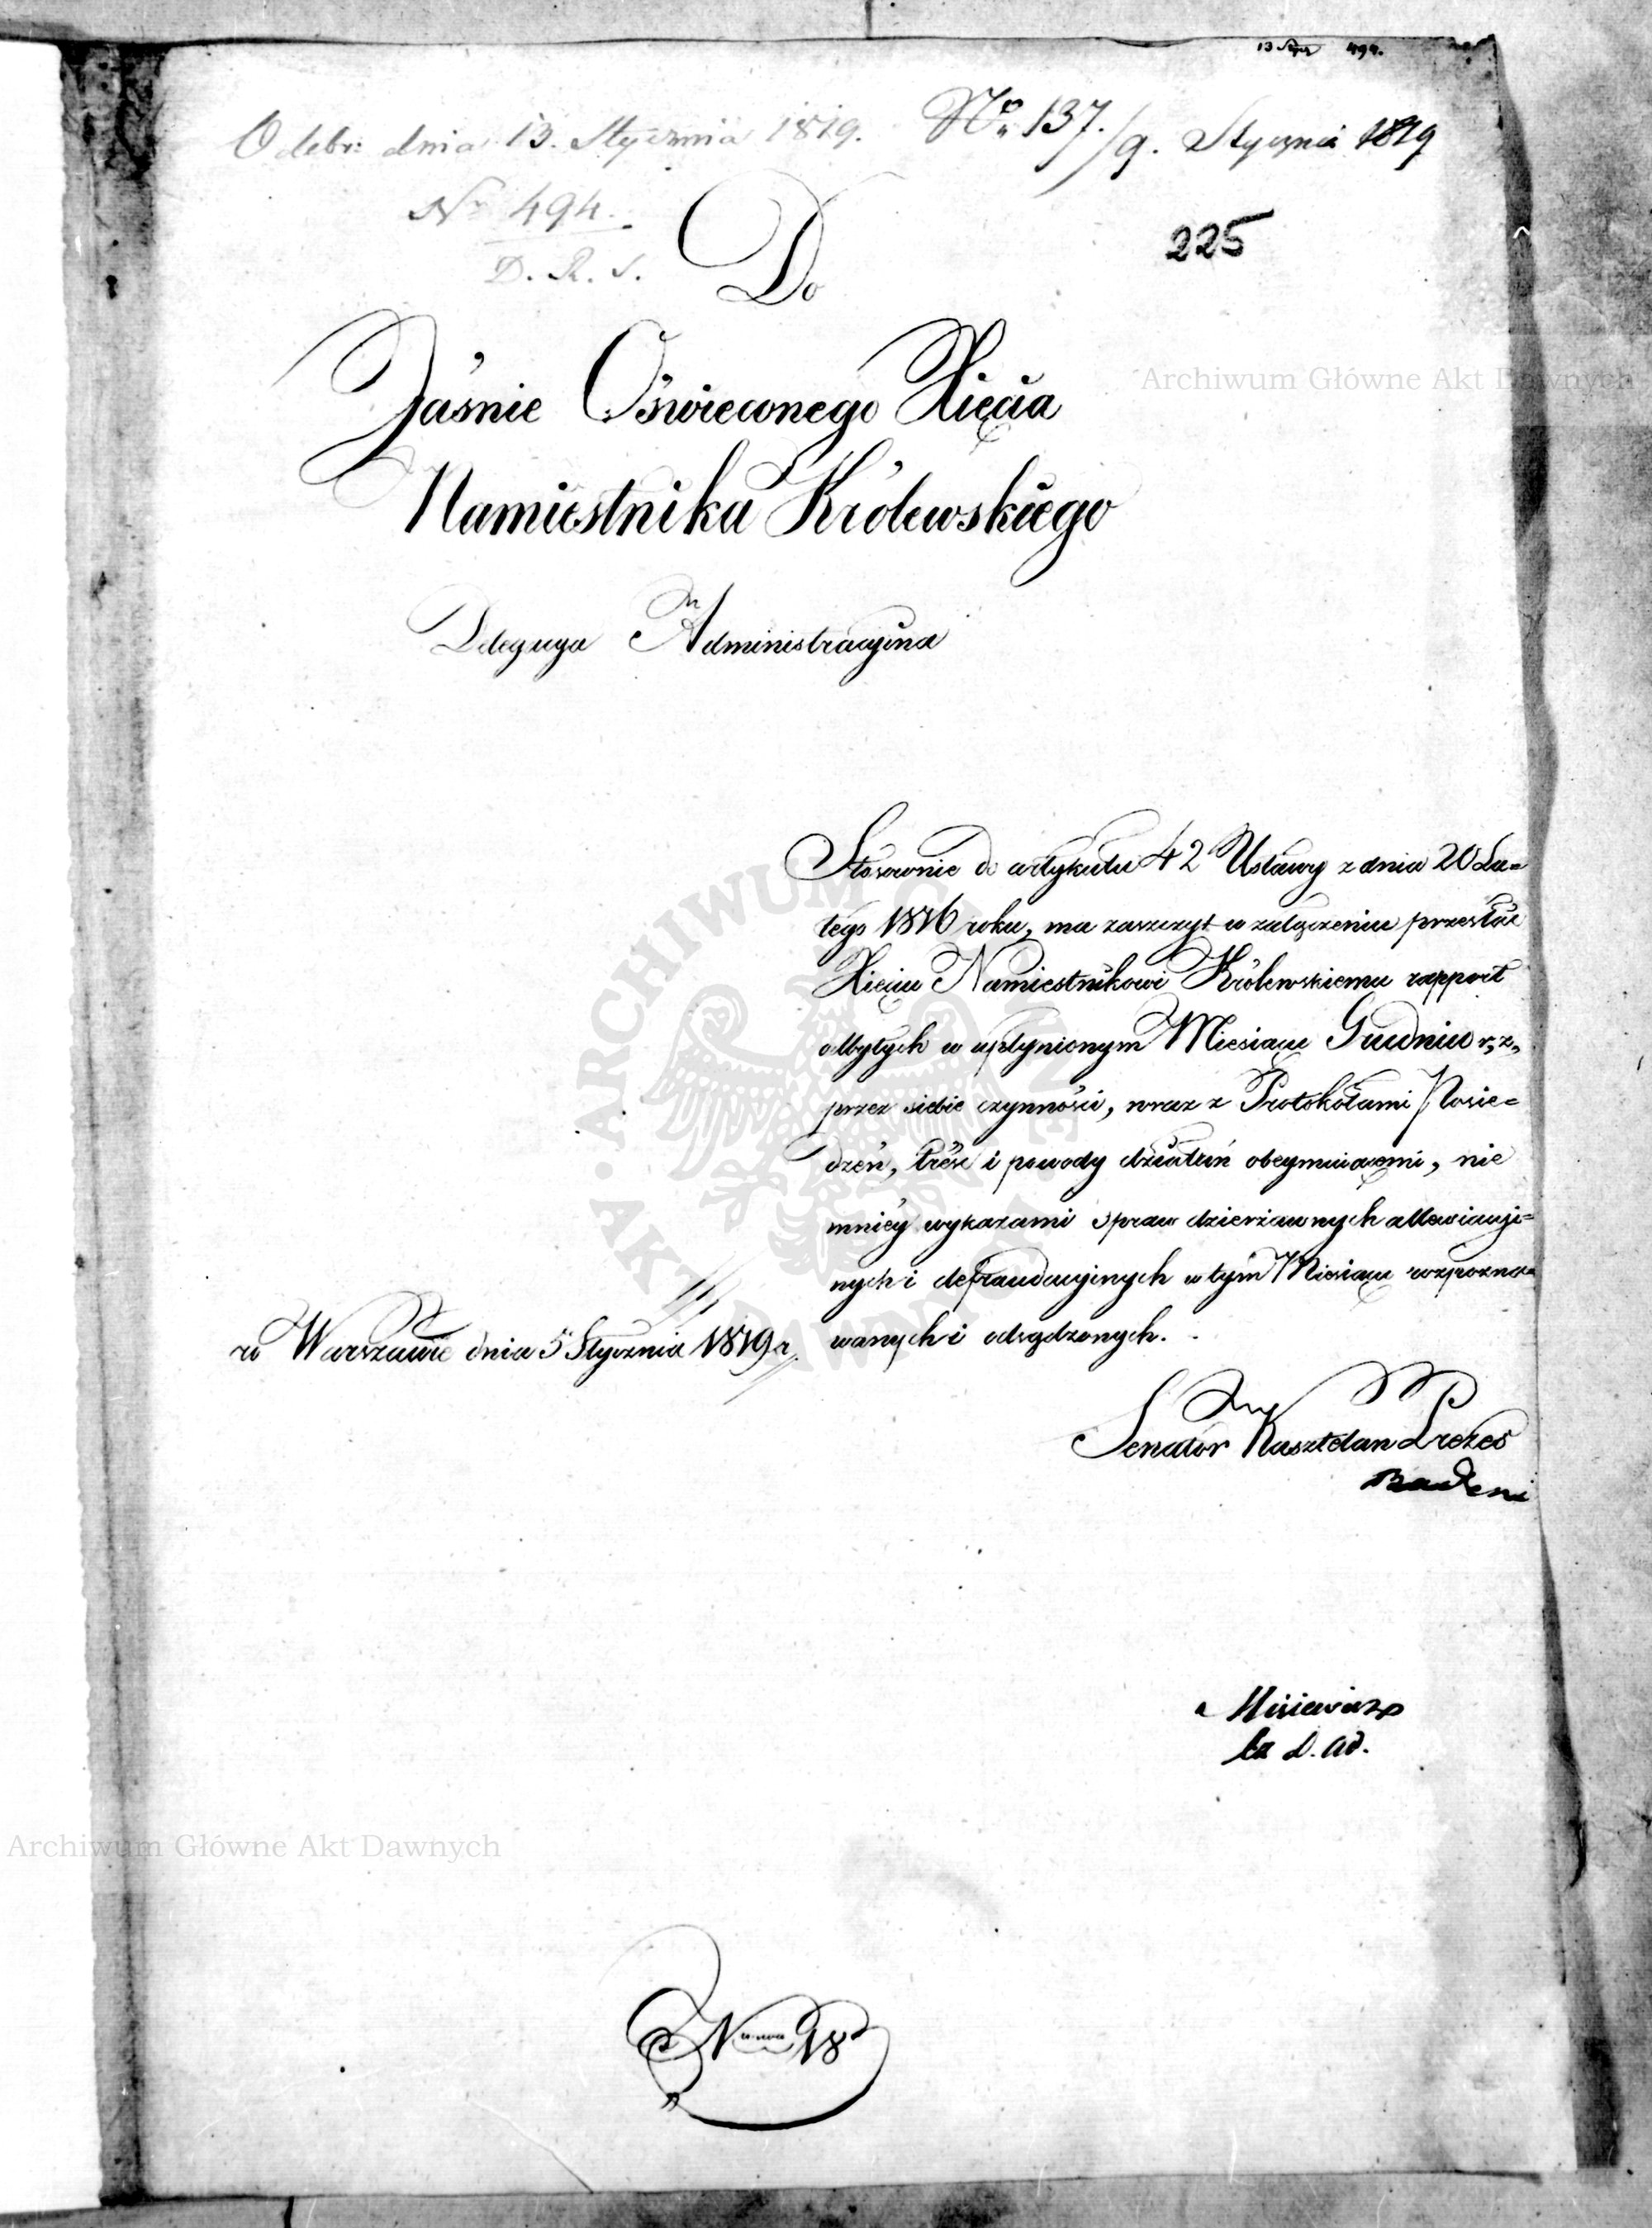 13 Stycz 494.
Odebr: dnia 13. Stycznia 1819. No 137./9. Stycznia 1819
No 494.
D. R. S.
225
Do
Jaśnie Oświeconego Xięcia
Namiestnika Królewskiego
Delegacya Administracyina
Stósownie do artykułu 42 Ustawy z dnia 20 Lu=
tego 1816 roku, ma zaszczyt w załączeniu przesłać
Xięciu Namiestnikowi Królewskiemu rapport
odbytych w upłynionym Miesiącu Grudniu r. z.
przez siebie czynności, wraz z Protokołami Posie=
dzeń, treść i powody działań obeymuiącemi, nie
mniéy wykazami spraw dzierżawnych allewiacyi=
nych i defraudacyinych w tym Miesiącu rozpozna=
wanych i odsądzonych.
w Warszawie dnia 5 Stycznia 1819 r.
Senator Kasztelan Prezes
Badeni
Misiewicz
D. Ad.
18
Archiwum Główne Akt Dawnych
Archiwum Główne Akt Dawnych
ARCHIWUM GŁÓWNE AKT DAWNYCH